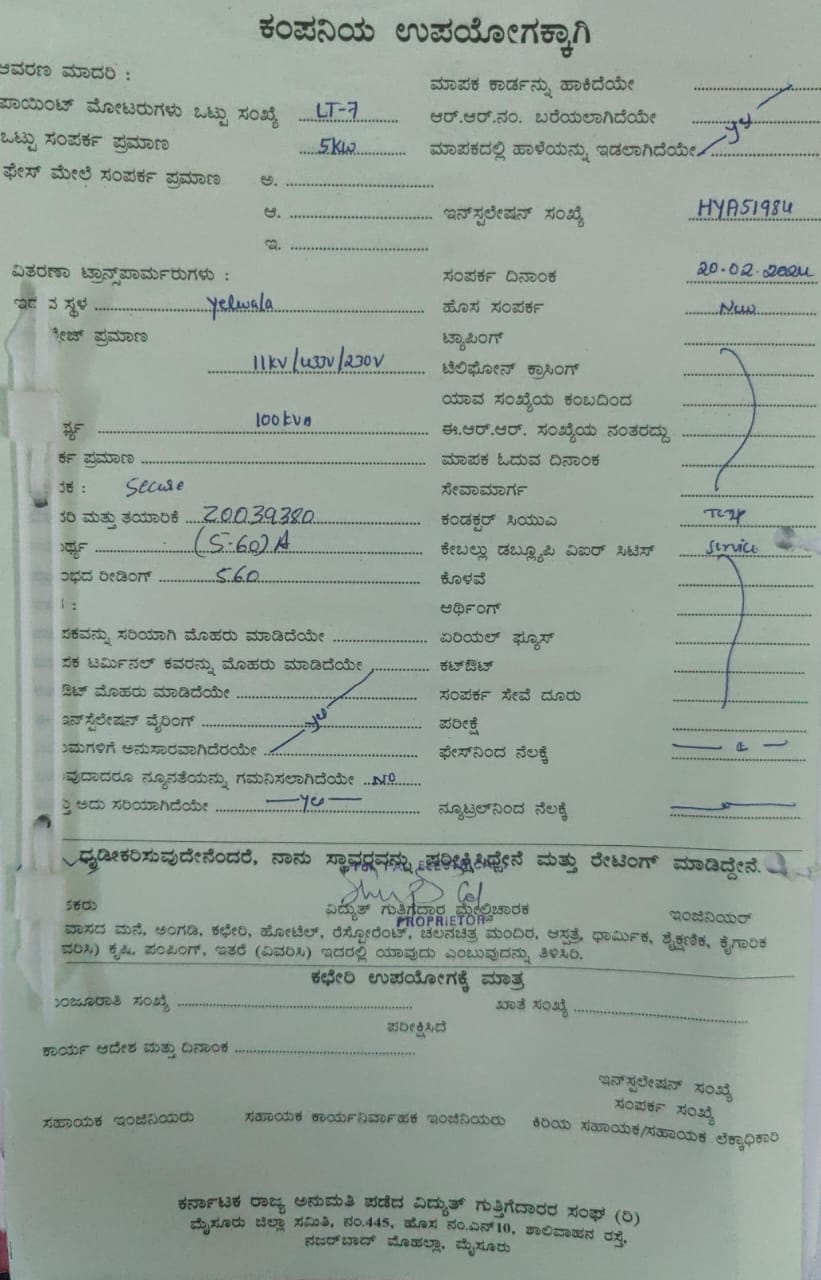 ಕಂಪನಿಯ ಉಪಯೋಗಕ್ಕಾಗಿ
ಆವರಣ ಮಾದರಿ :
ಮಾಪಕ ಕಾರ್ಡನ್ನು ಹಾಕಿದೆಯೇ
ಪಾಯಿಂಟ್ ಮೋಟರುಗಳು ಒಟ್ಟು ಸಂಖ್ಯೆ LT-7
ಆರ್.ಆರ್.ನಂ. ಬರೆಯಲಾಗಿದೆಯೇ
ಒಟ್ಟು ಸಂಪರ್ಕ ಪ್ರಮಾಣ 5KW
ಮಾಪಕದಲ್ಲಿ ಹಾಳೆಯನ್ನು ಇಡಲಾಗಿದೆಯೇ
ಫೇಸ್ ಮೇಲೆ ಸಂಪರ್ಕ ಪ್ರಮಾಣ ಅ.
ಆ.
ಇನ್‌ಸ್ಪಲೇಷನ್ ಸಂಖ್ಯೆ HYA51984
ಇ.
ವಿತರಣಾ ಟ್ರಾನ್ಸ್‌ಪಾರ್ಮರುಗಳು :
ಸಂಪರ್ಕ ದಿನಾಂಕ 20.02.2024
ಸ್ಥಳ Yelwala
ಹೊಸ ಸಂಪರ್ಕ New
ಪ್ರಮಾಣ
ಟ್ಯಾಪಿಂಗ್
11KV/433V/230V
ಟೆಲಿಫೋನ್ ಕ್ರಾಸಿಂಗ್
ಯಾವ ಸಂಖ್ಯೆಯ ಕಂಬದಿಂದ
100kVA
ಈ.ಆರ್.ಆರ್. ಸಂಖ್ಯೆಯ ನಂತರದ್ದು
ರ್ಕ ಪ್ರಮಾಣ
ಮಾಪಕ ಓದುವ ದಿನಾಂಕ
ಕ : Secure
ಸೇವಾಮಾರ್ಗ
ರಿ ಮತ್ತು ತಯಾರಿಕೆ Z0039380
ಕಂಡಕ್ಟರ್ ಸಿಯುಎ
ರ್ಥ್ಯ (5-60)A
ಕೇಬಲ್ಲು ಡಬ್ಲ್ಯೂಪಿ ವಿಐರ್ ಸಿಟಿಸ್ Service
ಭದ ರೀಡಿಂಗ್ 560
ಕೊಳವೆ
ಆರ್ಥಿಂಗ್
ಪಕವನ್ನು ಸರಿಯಾಗಿ ಮೊಹರು ಮಾಡಿದೆಯೇ
ಏರಿಯಲ್ ಫ್ಯೂಸ್
ಪಕ ಟರ್ಮಿನಲ್ ಕವರನ್ನು ಮೊಹರು ಮಾಡಿದೆಯೇ
ಕಟ್‌ಔಟ್
ಔಟ್ ಮೊಹರು ಮಾಡಿದೆಯೇ
ಸಂಪರ್ಕ ಸೇವೆ ದೂರು
ಇನ್‌ಸ್ಪೆಲೇಷನ್ ವೈರಿಂಗ್ yes
ಪರೀಕ್ಷೆ
ಮಗಳಿಗೆ ಅನುಸಾರವಾಗಿದೆರಯೇ
ಫೇಸ್‌ನಿಂದ ನೆಲಕ್ಕೆ
ವುದಾದರೂ ನ್ಯೂನತೆಯನ್ನು ಗಮನಿಸಲಾಗಿದೆಯೇ No
ತ್ತು ಅದು ಸರಿಯಾಗಿದೆಯೇ yes
ನ್ಯೂಟ್ರಲ್‌ನಿಂದ ನೆಲಕ್ಕೆ
ಧೃಡೀಕರಿಸುವುದೇನೆಂದರೆ, ನಾನು ಸ್ಥಾವರವನ್ನು ಪರೀಕ್ಷಿಸಿದ್ದೇನೆ ಮತ್ತು ರೇಟಿಂಗ್ ಮಾಡಿದ್ದೇನೆ.
ಕರು
ವಿದ್ಯುತ್ ಗುತ್ತಿಗೆದಾರ ಮೇಲ್ವಿಚಾರಕ
ಇಂಜಿನಿಯರ್
PROPRIETOR
ವಾಸದ ಮನೆ, ಅಂಗಡಿ, ಕಛೇರಿ, ಹೋಟೆಲ್, ರೆಸ್ಟೋರೆಂಟ್, ಚಲನಚಿತ್ರ ಮಂದಿರ, ಆಸ್ಪತ್ರೆ, ಧಾರ್ಮಿಕ, ಶೈಕ್ಷಣಿಕ, ಕೈಗಾರಿಕ
ವರಿಸಿ) ಕೃಷಿ, ಪಂಪಿಂಗ್, ಇತರೆ (ವಿವರಿಸಿ) ಇದರಲ್ಲಿ ಯಾವುದು ಎಂಬುವುದನ್ನು ತಿಳಿಸಿರಿ.
ಕಛೇರಿ ಉಪಯೋಗಕ್ಕೆ ಮಾತ್ರ
ಂಜೂರಾತಿ ಸಂಖ್ಯೆ
ಖಾತೆ ಸಂಖ್ಯೆ
ಪರೀಕ್ಷಿಸಿದೆ
ಕಾರ್ಯ ಆದೇಶ ಮತ್ತು ದಿನಾಂಕ
ಇನ್‌ಸ್ಪಲೇಷನ್ ಸಂಖ್ಯೆ
ಸಂಪರ್ಕ ಸಂಖ್ಯೆ
ಸಹಾಯಕ ಇಂಜಿನಿಯರು
ಸಹಾಯಕ ಕಾರ್ಯನಿರ್ವಾಹಕ ಇಂಜಿನಿಯರು
ಕಿರಿಯ ಸಹಾಯಕ/ಸಹಾಯಕ ಲೆಕ್ಕಾಧಿಕಾರಿ
ಕರ್ನಾಟಕ ರಾಜ್ಯ ಅನುಮತಿ ಪಡೆದ ವಿದ್ಯುತ್ ಗುತ್ತಿಗೆದಾರರ ಸಂಘ (ರಿ)
ಮೈಸೂರು ಜಿಲ್ಲಾ ಸಮಿತಿ, ನಂ.445, ಹೊಸ ನಂ.ಎನ್10, ಶಾಲಿವಾಹನ ರಸ್ತೆ,
ನಜರ್‌ಬಾದ್ ಮೊಹಲ್ಲಾ, ಮೈಸೂರು